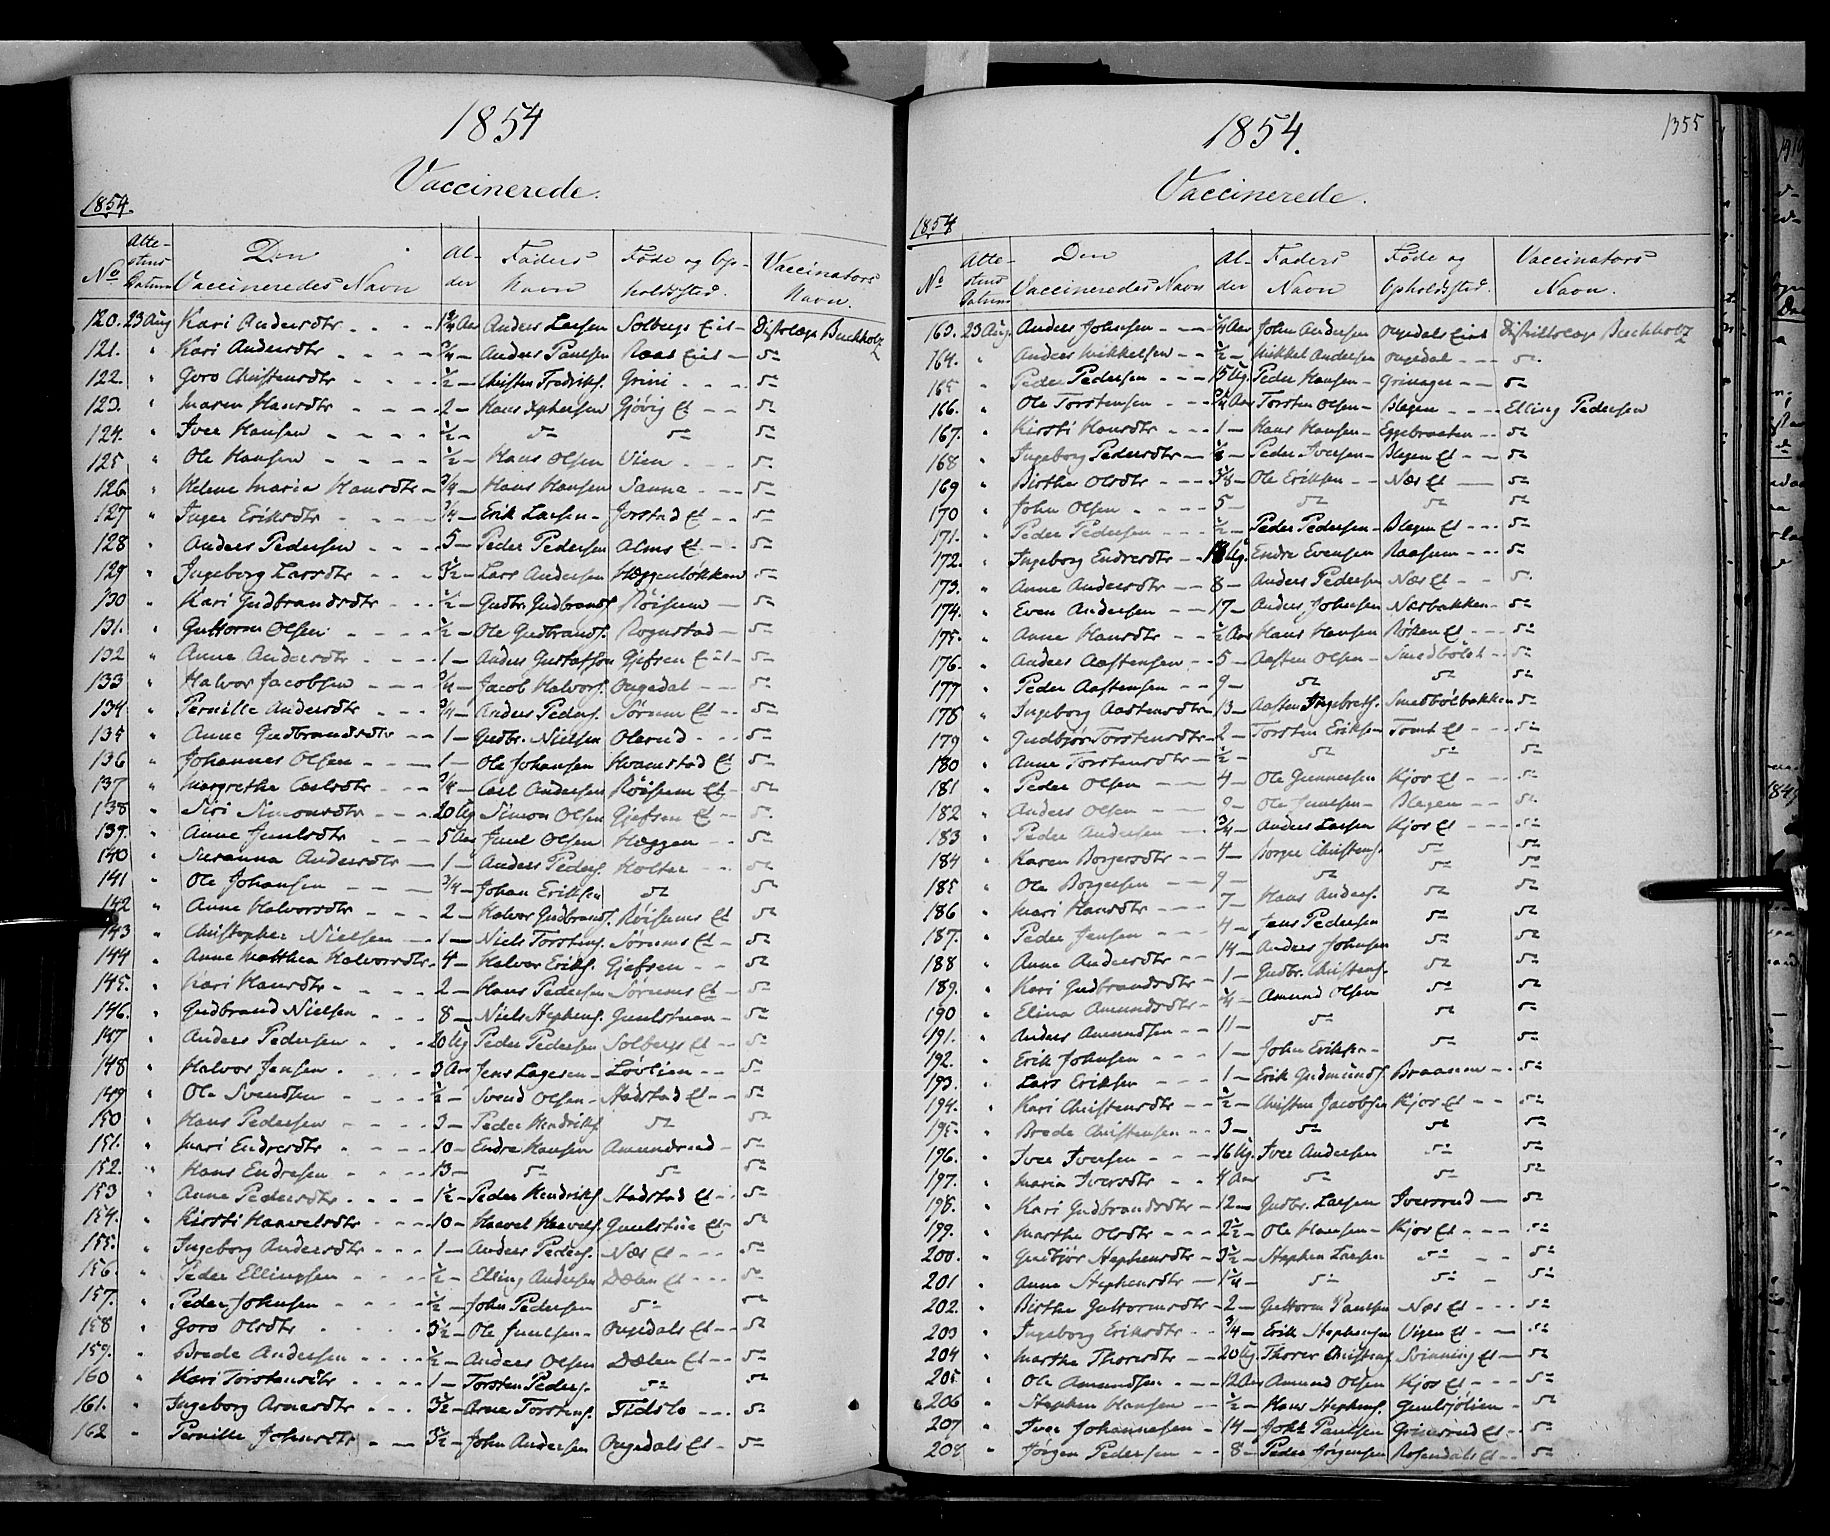 1854
Vaccinerede.
1854.
No Attestens Datum Den Vaccineredes Navn Alder Faders Navn Føde og Opholdssted. Vaccinators Navn.
120. 23 Aug Kari Andersdtr Aar Anders Larsen Solbergs Eiet Distrlæge Buchholz
121. " Kari Andersdtr Anders Paulsen Raas Eiet 5-
122. " Goro Christensdtr ½ Christen Fredriks. Grini 5-
123. " Maren Hansdtr 2 Hans Gjøvig Et 5-
124. " Iver Hansen ½ 5- 5- 5-
125 " Ole Hansen ½ Hans Olsen Vien 5-
126 " Helene Maria Hansdtr ¾ Hans Hansen Sanna 5-
127 " Inger Eriksdtr ¾ Erik Larsen Jorstad Et 5-
128 " Anders Pedersen 5 Peder Pedersen Alms Et 5-
129 " Ingeborg Larsdtr 3½ Lars Andersen Hæggenløkken 5-
130 " Kari Gudbrandsdtr ½ Gudbr. Gudbrands. Røisum 5-
131. " Guttorm Olsen ½ Ole Gudbrands. Rognstad 5-
132 " Anne Andersdtr 1 Anders Gustafson Gjefsen Eiet 5-
133 " Halvor Jacobsen ¾ Jacob Halvors. Ougedal 5-
134 " Pernille Andersdtr ¾ Anders Peders. Sørum Et 5-
135 " Anne Gudbrandsdtr 1 Gudbr. Nielsen Olerud 5-
136 " Johannes Olsen 1 Ole Johansen Hvamstad Et 5-
137 " Margrethe Carlsdtr ¾ Carl Andersen Røisum Et 5-
138 " Siri Simonsdtr 20 Ug Simon Olsen Gjefsen Et 5-
139. " Anne Juulsdtr 5 Aar Juul Olsen Hæggen 5-
140 " Susanna Andersdtr 1 Anders Peders. Holter 5-
141 " Ole Johansen ¾ Johan Eriksen 5- 5-
142 " Anne Halvorsdtr 2 Halvor Gudbrands. Røisums Et 5-
143 " Christopher Nielsen 1 Niels Torstens. Sørums Et 5-
144 " Anne Matthea Halvorsdtr 4 Halvor Eriks. Gjefsen 5-
145. " Kari Hansdtr 2 Hans Pedersen Sørums Et 5-
146. " Gudbrand Nielsen 8 Niels Stephens. Guulstuen 5-
147 " Anders Pedersen 20 Ug Peder Pedersen Solbergs Et 5-
148 " Halvor Jensen 3 Aar Jens Lagesen Løvlien 5-
149 " Ole Svendsen ½ Svend Olsen Hadstad Et 5-
150 " Hans Pedersen 3 Peder Hendriks. 5- 5-
151. " Mari Endresdtr 10 Endre Hansen Amundrud 5-
152. " Hans Endresen 13 5- 5- 5-
153 " Anne Pedersdtr 1½ Peder Hendriks. Hadstad Et 5-
154. " Kirsti Haavelsdtr 10 Haavel Haavels. Guulstue Et 5-
155. " Ingeborg Andersdtr 1 Anders Peders. Næs Et 5-
156. " Peder Ellingsen ½ Elling Andersen Dælen Et 5-
157. " Peder Johnsen ½ John Pedersen 5- 5-
158 " Goro Olsdtr 3½ Ole Juulsen Ougedals Et 5-
159. " Brede Andersen ½ Anders Olsen Dælen Et 5-
160 " Kari Torstensdtr 1 Torsten Peders. 5- 5-
161. " Ingeborg Arnesdtr 3½ Arne Torstens. Fidslo 5-
162 " Pernille Johnsdtr 3½ John Andersen Ougedals Et 5-
1355
1854.
Vaccinerede.
1854
No Attestens Datum Den Vaccineredes Navn Alder Faders Navn Føde og Opholdssted. Vaccinators Navn.
163. 23 Aug. Anders Johnsen ¼ Aar John Andersen Ougedals Eiet Distriktslæge Buchholz
164. " Anders Mikkelsen ½ Mikkel Andersen Ougedal 5-
165 " Peder Pedersen 15 Ug. Peder Hansen Grinager 5-
166. " Ole Torstensen ¾ Aar Torsten Olsen Blegen Elling Pedersen
167. " Kirsti Hansdtr 1 Hans Hansen Eggebraaten 5-
168 " Ingeborg Pedersdtr Peder Iversen Blegen Et 5-
169 " Birthe Olsdtr Ole Eriksen Næs Et 5-
170 " John Olsen 5 5- 5- 5-
171. " Peder Pedersen ½ Peder Pedersen Blegen Et 5-
172. " Ingeborg Endresdtr Ug. Endre Evensen Raasum 5-
173. " Anne Andersdtr 8 Anders Pedersen Næs Et 5-
174. " Even Andersen 17 Anders Johnsen Næsbakken 5-
175. " Anne Hansdtr ½ Aar Hans Hansen Røken Et 5-
176. " Anders Aastensen 5 Aasten Olsen Smedbølet 5-
177 " Peder Aastensen 9 5- 5- 5-
178 " Ingeborg Aastensdtr 13 Aasten Ingebrets. Smedbølbakken 5-
179 " Gudbjør Torstensdtr 2 Torsten Eriksen Tomt Et 5-
180 " Anne Torstensdtr ½ 5- 5- 5-
181 " Peder Olsen 4 Ole Gunnersen Kjos Et 5-
182 " Anders Olsen 9 Ole Juulsen Blegen 5-
183 " Peder Andersen ¾ Anders Larsen Kjos Et 5-
184 " Karen Borgersdtr 4 Borger Christens. 5- 5-
185 " Ole Borgersen 9 5- 5- 5-
186 " Mari Hansdtr 7 Hans Anders. 5- 5-
187. " Peder Jensen 4 Jens Pedersen 5- 5-
188 " Anne Andersdtr 14 Anders Johnsen 5- 5-
189. " Kari Gudbrandsdtr 1 Gudbr. Christens. 5- 5-
190 " Elina Amundsdtr ¼ Amund Olsen 5- 5-
191. " Anders Amundsen 11 5- 5- 5-
192. " Erik Johnsen 1 John Eriksen 5- 5-
193. " Lars Eriksen 1 Erik Gudmunds. Braanen 5-
194. " Kari Christensdtr ½ Christen Jacobsen Kjos Et 5-
195. " Brede Christensen 3 5- 5- 5-
196. " Iver Iversen 16 Ug. Iver Andersen 5- 5-
197. " Maria Iversdtr 4 Aar 5- 5- 5-
198. " Kari Gudbrandsdtr 12 Gudbr. Larsen Iversrud 5-
199. " Marthe Olsdtr 2½ Ole Hansen Kjos Et 5-
200. " Gudbjør Stephensdtr 3½ Stephen Larsen 5- 5-
201 " Anne Stephensdtr ¼ 5- 5- 5-
202. " Birthe Guttormsdtr 2 Guttorm Paulsen Næs Et 5-
203 " Ingeborg Eriksdtr ¾ Erik Stephensen Vigen Et 5-
204 " Marthe Thoresdtr 20 Ug. Thorer Christens. Svinning Et 5-
205 " Ole Amundsen 12 Aar Amund Olsen Kjos Et 5-
206 " Stephen Hansen ½ Hans Stephens. Guulsjølien 5-
207 " Iver Johannesen 14 Johs Paulsen Grimsrud Et 5-
208 " Jørgen Pedersen 8 Peder Jørgensen Rosendals Et 5-